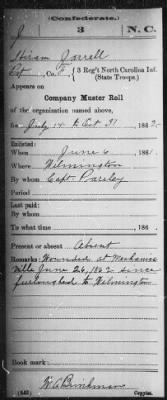 (Confederate.)
J 3 N.C.
Hiram Jarrell
Co. F 3 Reg't North Carolina Inf.
(State Troops.)
Appears on
Company Muster Roll
of the organization named above,
for July 14 to Oct 31, 1862.
Enlisted:
When June 6, 186
Where Wilmington
By whom Capt Parsley
Period
Last paid:
By whom
To what time , 186 .
Present or absent Absent
Remarks: Wounded at Mechanics
ville June 26, 1862 since
furloughed to Wilmington
Book mark:
(642) Copyist.